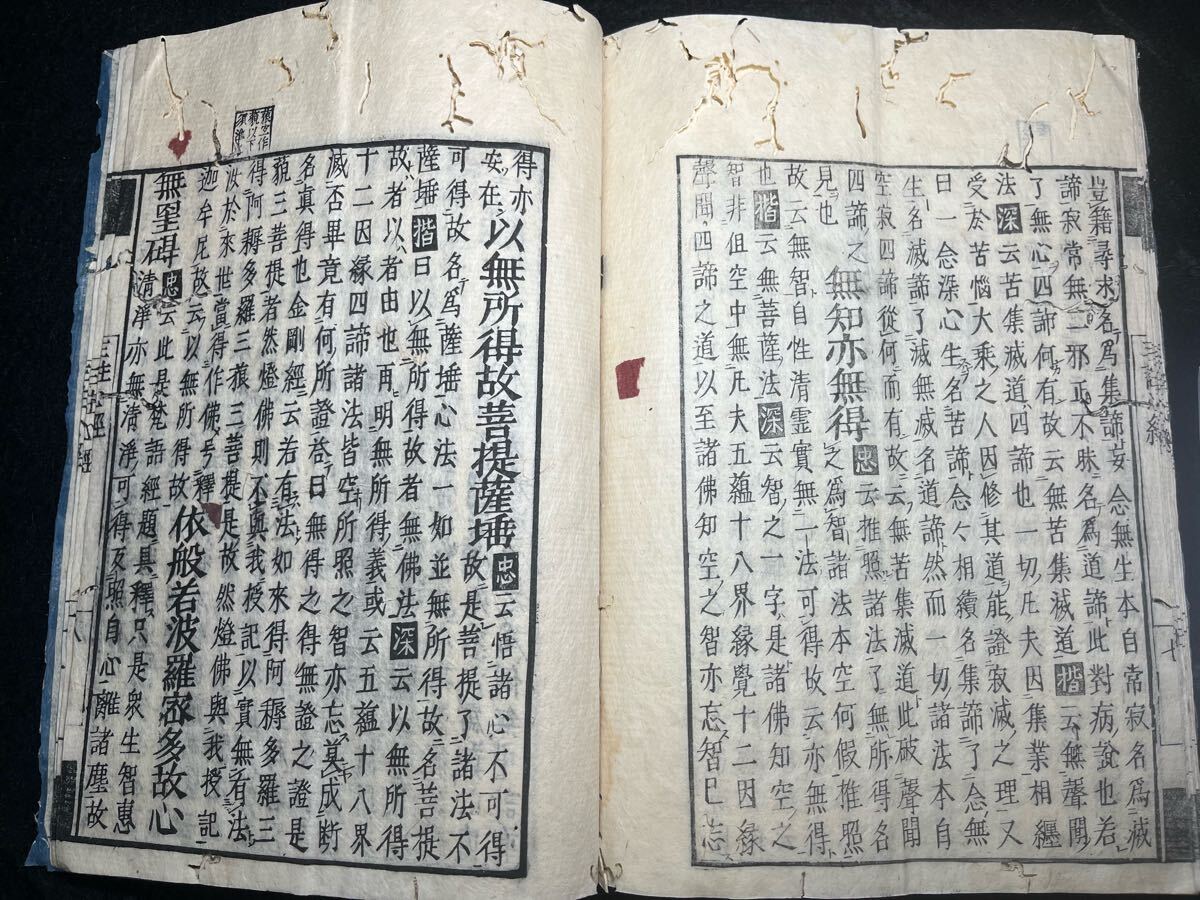 豈籍尋求名爲集諦妄念無生本自常寂名爲滅
諦寂常無二邪正不昧名爲道諦此對病說也若
了無心四諦何有故云無苦集滅道楷云無聲聞
法深云苦集滅道四諦也一切凡夫因集業相纏
受於苦惱大乘之人因修其道能證寂滅之理又
日一念深心生名苦諦念々相續名集諦了念無
生名滅諦了滅無滅名道諦然而一切諸法本自
空寂四諦從何而有故云無苦集滅道此破聲聞
四諦之無知亦無得忠云推照諸法了無所得名
見也之爲智諸法本空何假推照
故云無智自性清霊實無一法可得故云亦無得
也楷云無菩薩法深云智之一字是諸佛知空之
智非但空中無凡夫五蘊十八界縁覺十二因縁
聲聞四諦之道以至諸佛知空之智亦忘智已忘
得亦以無所得故菩提薩埵忠云悟諸心不可得
安在故是菩提了諸法不
可得故名爲薩埵心法一如並無所得故名菩提
薩埵楷曰以無所得故者無佛法深云以無所得
故者以者由也再明無所得義或云五蘊十八界
十二因縁四諦諸法皆空所照之智亦忘莫成断
滅否畢竟有何所證答曰無得之得無證之證是
名真得也金剛經云若有法如來得阿耨多羅三
藐三菩提者然燈佛則不與我授記以實無有法
得阿耨多羅三藐三菩提是故然燈佛與我授記
汝於來世當得作佛号釋
迦牟尼故云以無所得故依般若波羅密多故心
無罣碍忠云此是梵語經題具釋只是衆生智惠
清淨亦無清淨可得反照自心離諸塵故
三注心經